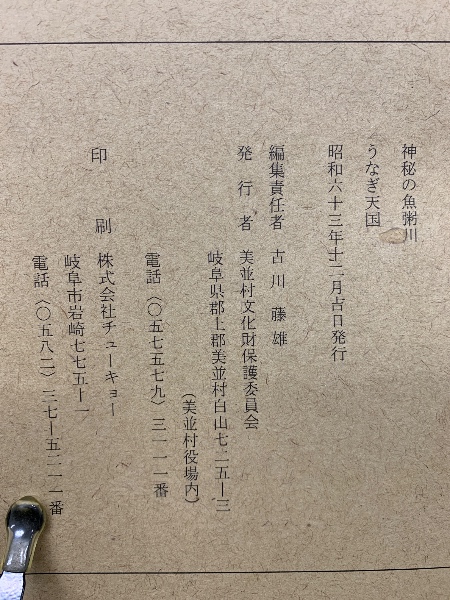 神秘の魚粥川
うなぎ天国
昭和六十三年十二月吉日発行
編集責任者 古川藤雄
発行者 美並村文化財保護委員会
岐阜県郡上郡美並村白山七二五ー三
（美並村役場内）
電話〈〇五七五七九〉三一一一番
印刷 株式会社チューキョー
岐阜市岩崎七七五ー一
電話〈〇五八二〉三七ー五二一一番